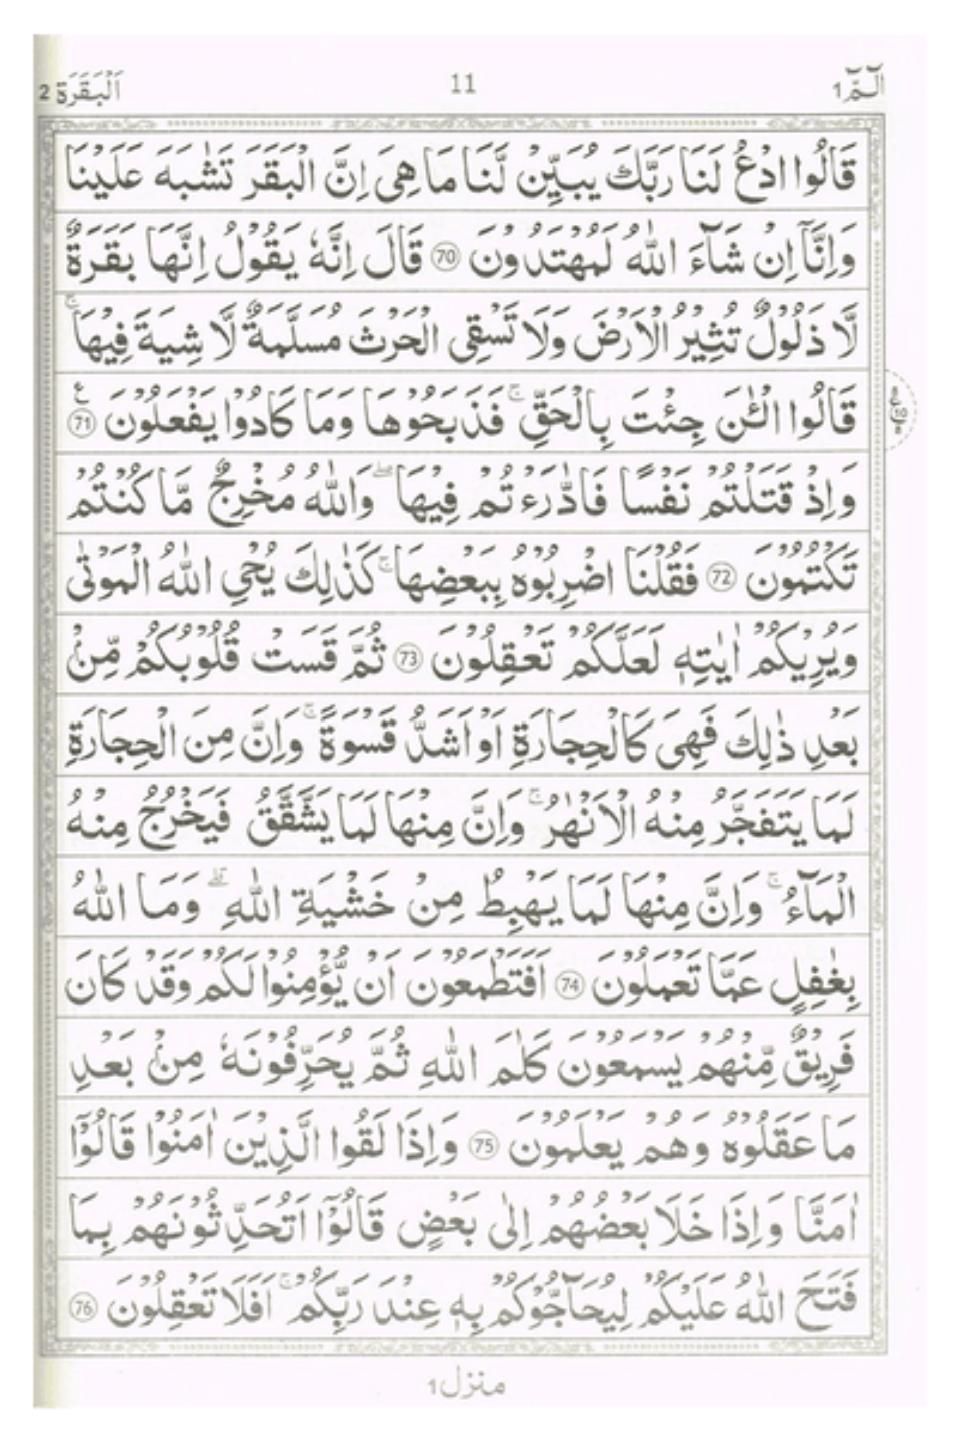 الٓمّٓ 1 11 اَلْبَقَرَة 2
قَالُوا ادْعُ لَنَا رَبَّكَ يُبَيِّنْ لَّنَا مَا هِىَ اِنَّ الْبَقَرَ تَشٰبَهَ عَلَيْنَا
وَاِنَّاۤ اِنْ شَآءَ اللّٰهُ لَمُهْتَدُوْنَ ﴿70﴾ قَالَ اِنَّهٗ يَقُوْلُ اِنَّهَا بَقَرَةٌ
لَّا ذَلُوْلٌ تُثِيْرُ الْاَرْضَ وَلَا تَسْقِى الْحَرْثَ مُسَلَّمَةٌ لَّا شِيَةَ فِيْهَا ۚ
قَالُوا الْـٰٔنَ جِئْتَ بِالْحَقِّ ۚ فَذَبَحُوْهَا وَمَا كَادُوْا يَفْعَلُوْنَ ﴿71﴾ ع
ع 10 8
وَاِذْ قَتَلْتُمْ نَفْسًا فَادّٰرَءْتُمْ فِيْهَا ؕ وَاللّٰهُ مُخْرِجٌ مَّا كُنْتُمْ
تَكْتُمُوْنَ ﴿72﴾ فَقُلْنَا اضْرِبُوْهُ بِبَعْضِهَا ؕ كَذٰلِكَ يُحْىِ اللّٰهُ الْمَوْتٰى
وَيُرِيْكُمْ اٰيٰتِهٖ لَعَلَّكُمْ تَعْقِلُوْنَ ﴿73﴾ ثُمَّ قَسَتْ قُلُوْبُكُمْ مِّنْۢ
بَعْدِ ذٰلِكَ فَهِىَ كَالْحِجَارَةِ اَوْ اَشَدُّ قَسْوَةً ؕ وَاِنَّ مِنَ الْحِجَارَةِ
لَمَا يَتَفَجَّرُ مِنْهُ الْاَنْهٰرُ ؕ وَاِنَّ مِنْهَا لَمَا يَشَّقَّقُ فَيَخْرُجُ مِنْهُ
الْمَآءُ ؕ وَاِنَّ مِنْهَا لَمَا يَهْبِطُ مِنْ خَشْيَةِ اللّٰهِ ؕ وَمَا اللّٰهُ
بِغَافِلٍ عَمَّا تَعْمَلُوْنَ ﴿74﴾ اَفَتَطْمَعُوْنَ اَنْ يُّؤْمِنُوْا لَكُمْ وَقَدْ كَانَ
فَرِيْقٌ مِّنْهُمْ يَسْمَعُوْنَ كَلٰمَ اللّٰهِ ثُمَّ يُحَرِّفُوْنَهٗ مِنْۢ بَعْدِ
مَا عَقَلُوْهُ وَهُمْ يَعْلَمُوْنَ ﴿75﴾ وَاِذَا لَقُوا الَّذِيْنَ اٰمَنُوْا قَالُوْۤا
اٰمَنَّا وَاِذَا خَلَا بَعْضُهُمْ اِلٰى بَعْضٍ قَالُوْۤا اَتُحَدِّثُوْنَهُمْ بِمَا
فَتَحَ اللّٰهُ عَلَيْكُمْ لِيُحَآجُّوْكُمْ بِهٖ عِنْدَ رَبِّكُمْ ؕ اَفَلَا تَعْقِلُوْنَ ﴿76﴾
منزل 1